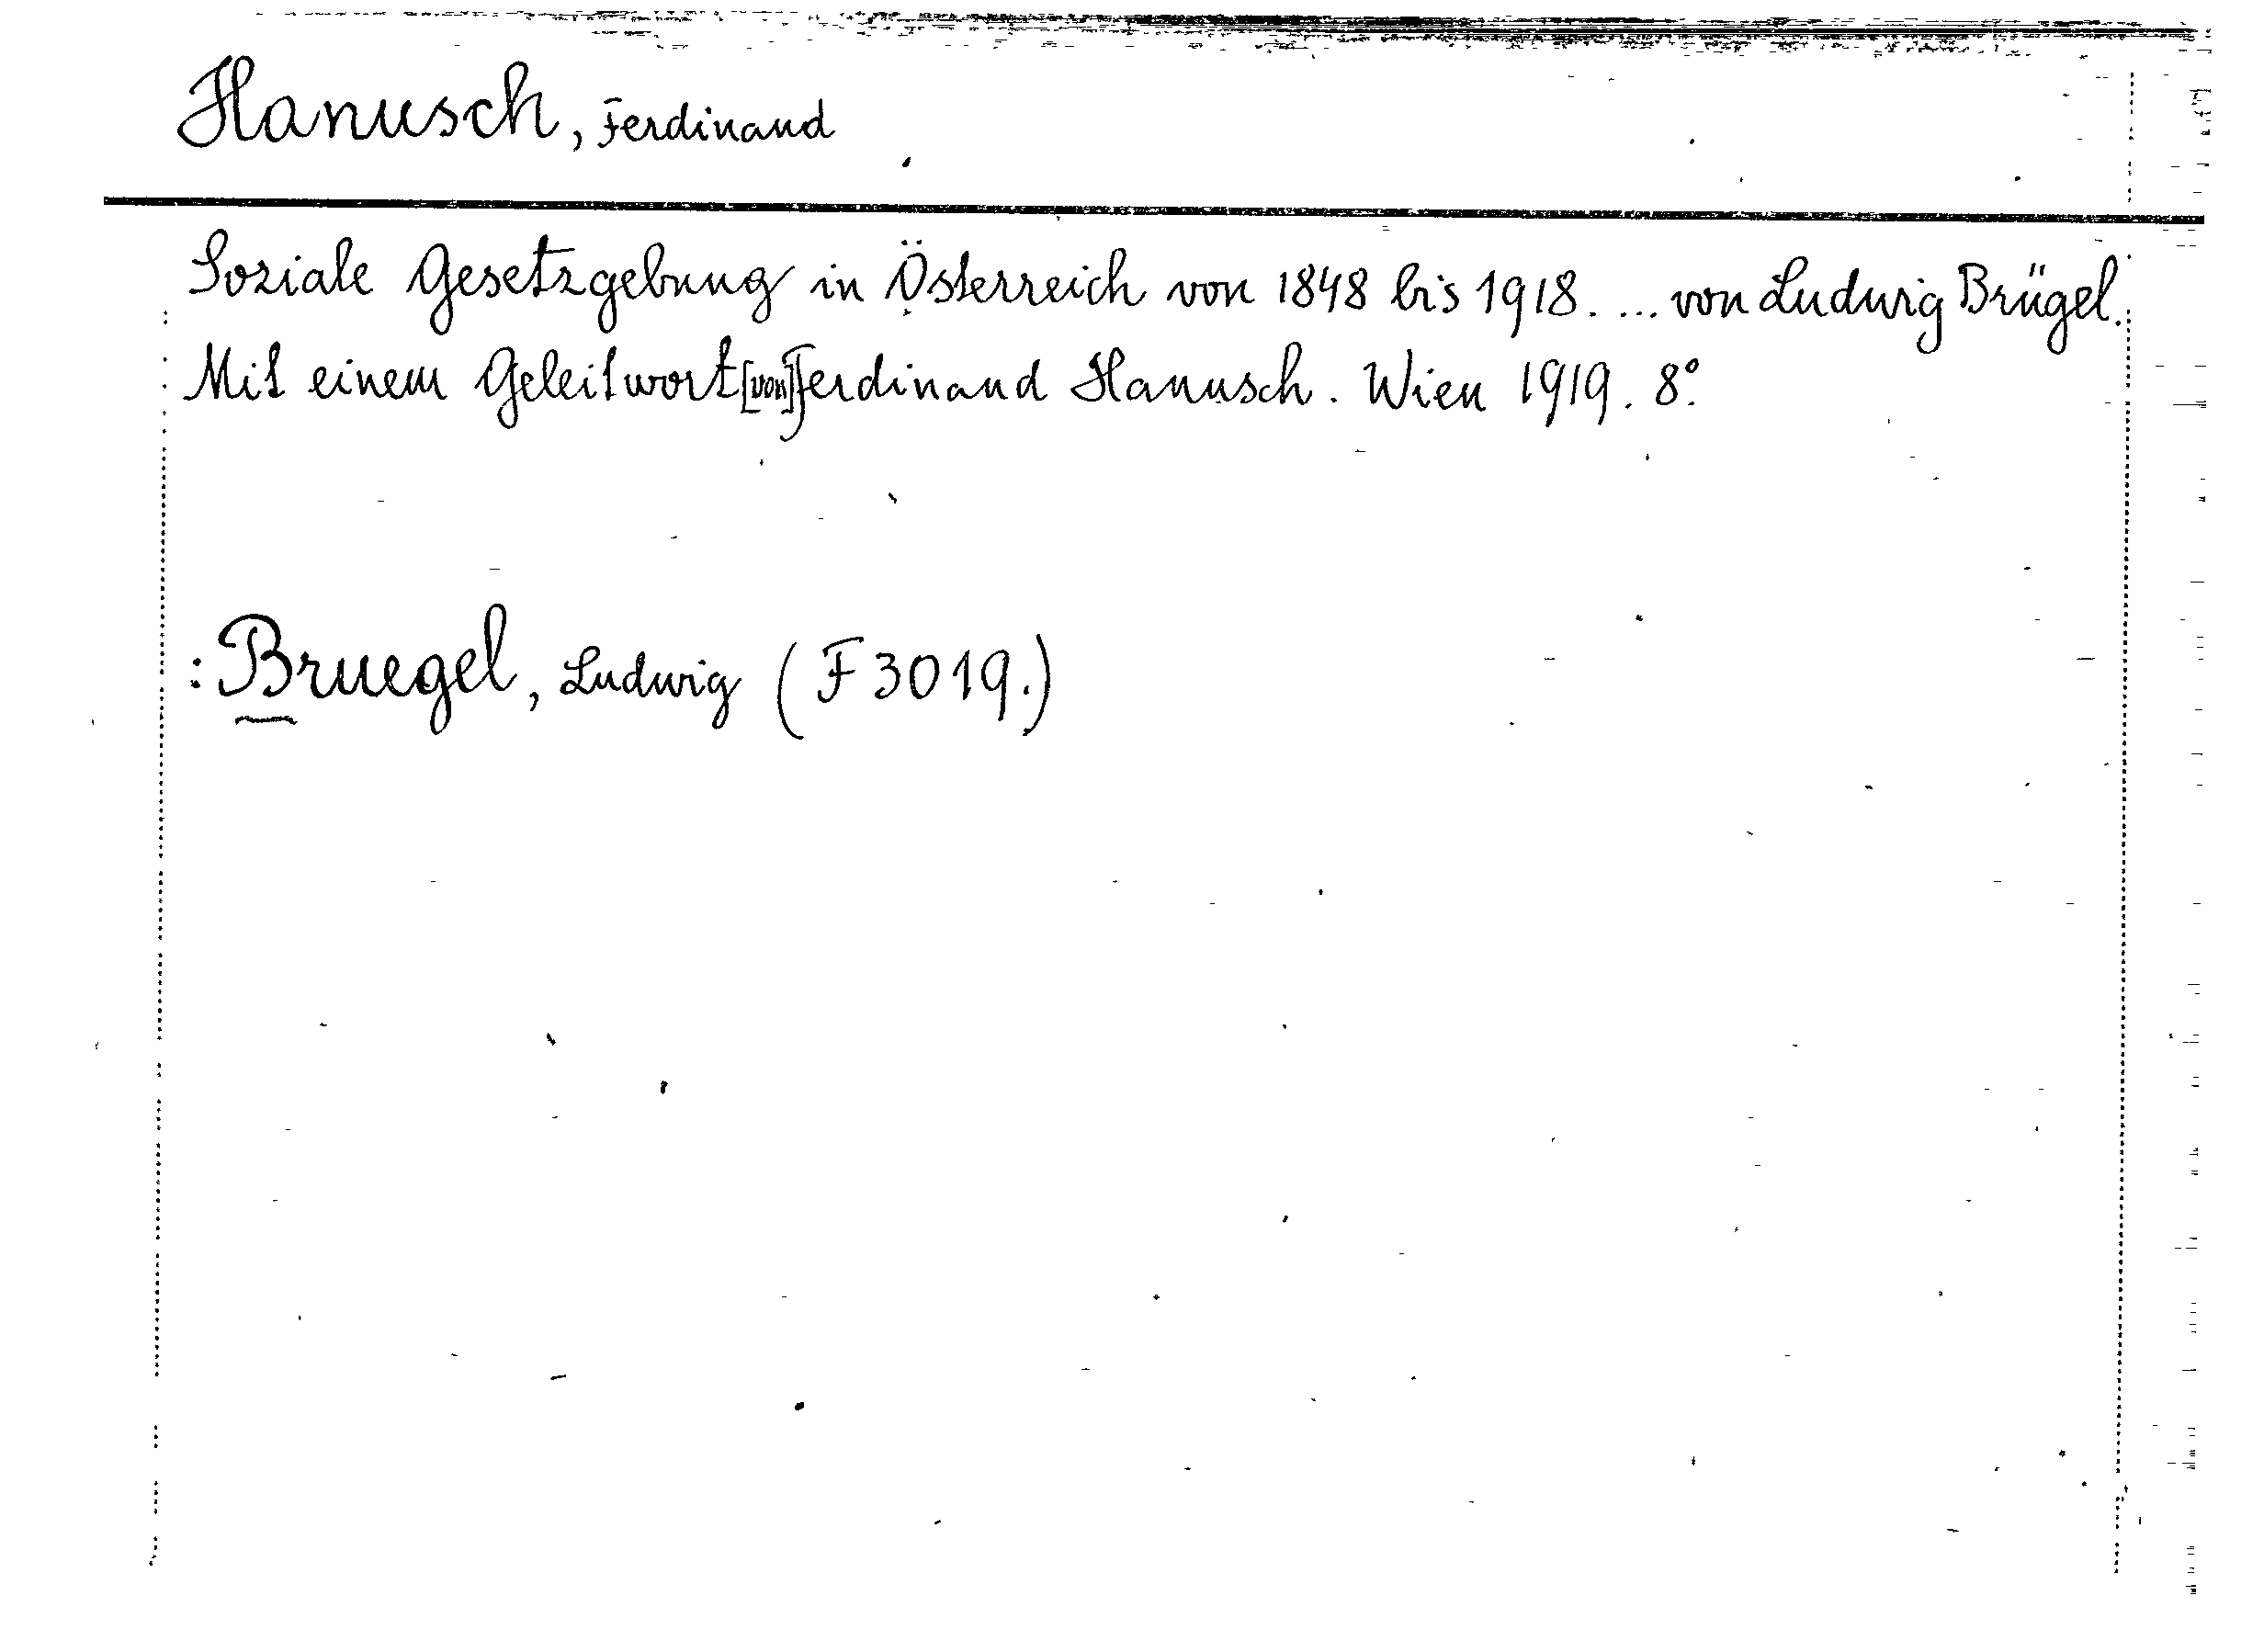 Hanusch, Ferdinand
Soziale Gesetzgebung in Österreich von 1848 bis 1918. ... von Ludwig Brügel.
Mit einem Geleitwort [von] Ferdinand Hanusch. Wien 1919. 8°.
: Bruegel, Ludwig (F 3019.)